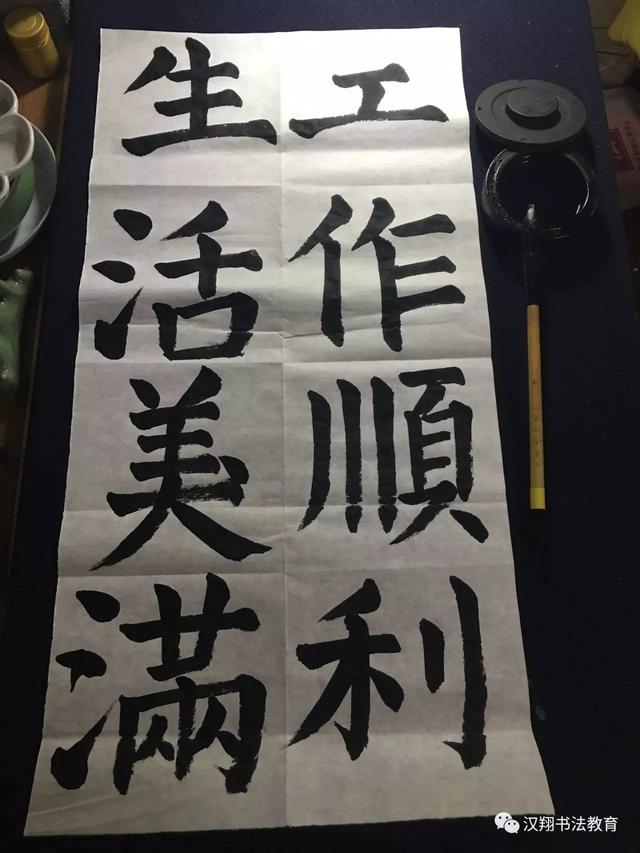 工作順利
生活美滿
汉翔书法教育